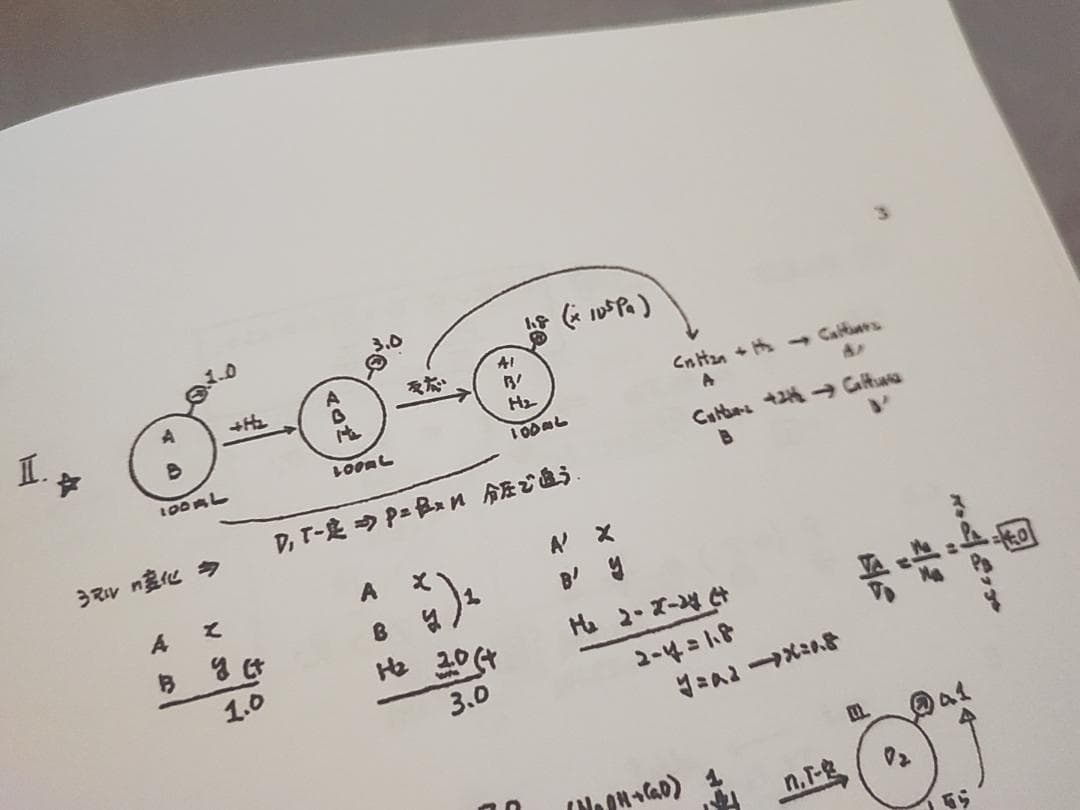 3
II. ☆
1.0
A
B
100mL
+H2
3.0
A
B
H2
100mL
反応
1.8 (×10⁵Pa)
A'
B'
H2
100mL
CnH2n + H2 → CnH2n+2
A A'
CnH2n-2 + 2H2 → CnH2n+2
B B'
T一定 ⇒ P=
分圧で追う.
n変化 ⇒
A x
B y (+
1.0
A x
B y ) 1
H2 2.0 (+
3.0
A' x
B' y
H2 2-x-2y (+
2-y=1.8
y=0.2 → x=0.8
x
PA
PB
y
= 4.0
III
O2
0.1
n,T一定
(NaOH+CaO)
1